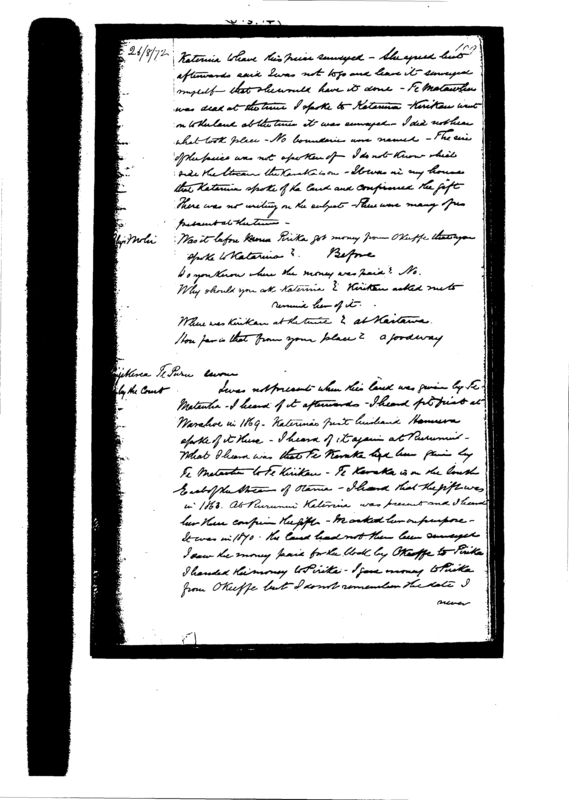 26/8/72
Katerina to have this piece surveyed – She agreed but
afterwards said I was not to go and have it surveyed
myself – that she would have it done – Te Matawha
was dead at the time I spoke to Katerina – Kirikau went
on to the land at the time it was surveyed – I did not hear
what took place – No boundaries were named – The size
of the piece was not spoken of I do not know which
side the Stream the Karaka is on – It was in my house
that Katerina spoke of the land and confirmed the gift
There was no writing on the subject – There were many of us
present at the time –
Was it before Pirika got money from OKeeffe that you
spoke to Katarina? Before
Do you know where the money was paid? No.
Why should you ask Katerina? Kirikau asked me to
remind her of it.
Where was Kirikau at the time? at
How far is that from your place? a good way
Te Puru sworn
by the Court
I was not present when this land was given by Te
I heard of it afterwards – I heard of it first at
in 1869 – Katerina's first husband
spoke of it there – I heard of it again at
What I heard was that Te Karaka had been given by
Te to Te Kirikau – Te Karaka is on the South
East of the Stream of – I heard that the gift was
in 1868. At Katerina was present and I heard
her there confirm the gift – We asked her on purpose –
It was in 1870. The land had not then been surveyed
I saw the money paid for the Block by OKeeffe to Pirika
I handed the money to Pirika – I gave money to Pirika
from OKeeffe but I do not remember the date I
never